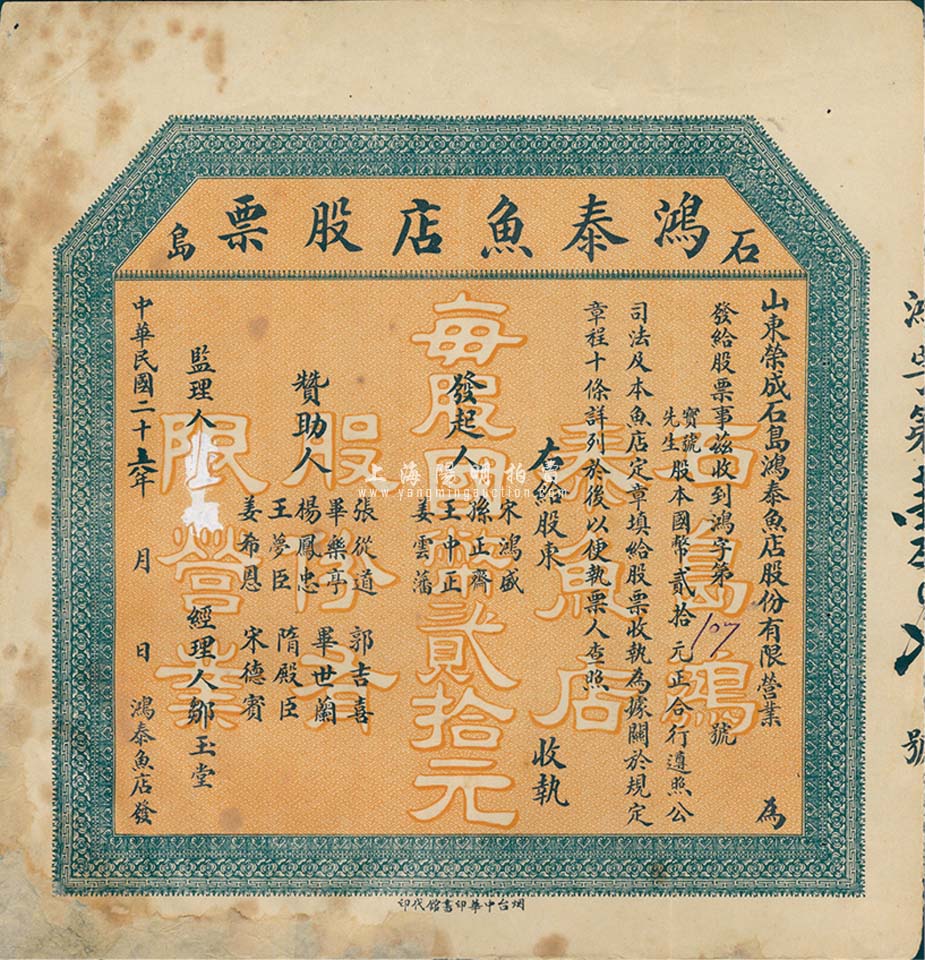 石鴻泰魚店股票島
山東榮成石島鴻泰魚店股份有限營業為
發給股票事茲收到鴻字第107號
寶號
先生
股本國幣貳拾元正合行遵照公
司法及本魚店定章填給股票收執為據關於規定
章程十條詳列於後以便執票人查照
右給股東 收執
發起人
宋鴻盛
孫正齊
王中正
姜雲藩
贊助人
張從道 郭吉喜
畢樂亭 畢世蘭
楊鳳忠
王夢臣 隋殿臣
姜希恩 宋德賓
監理人
經理人鄒玉堂
中華民國二十六年 月 日 鴻泰魚店發
石島鴻
泰魚店
每股國幣貳拾元
股份有
限營業
烟台中華印書館代印
鴻字第 號
上海陽明拍賣
www.yangmingauction.com